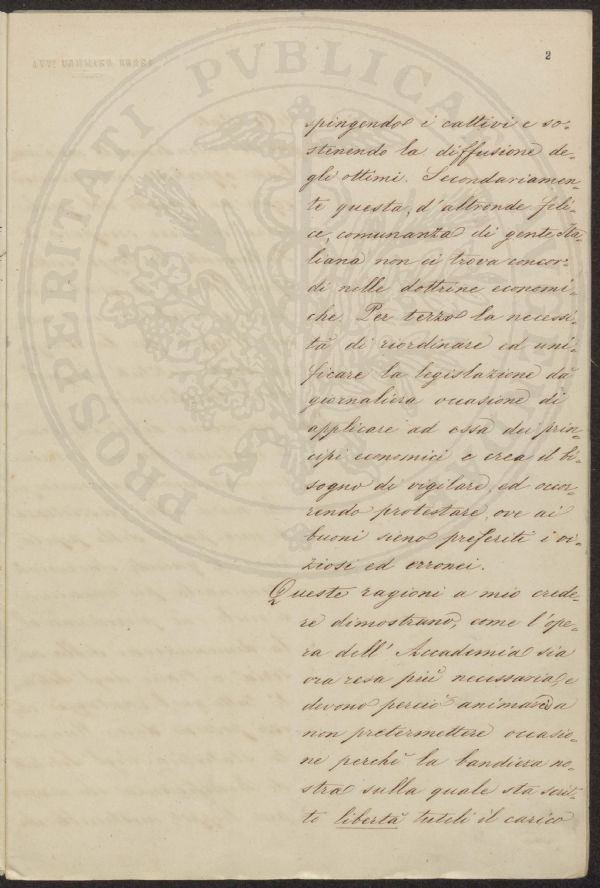 2
PROSPERITATI PVBLICA
spingendo i cattivi e so-
stenendo la diffusione de-
gli ottimi. Secondariamen-
te questa, d'altronde feli-
ce, comunanza di gente Ita-
liana non ci trova concor-
di nelle dottrine economi-
che. Per terzo la necessi-
tà di riordinare ed uni-
ficare la legislazione dà
giornaliera occasione di
applicare ad essa dei prin-
cipi economici e crea il bi-
sogno di vigilare, ed occor-
rendo protestare, ove ai
buoni sieno preferiti i vi-
ziosi ed erronei.
Queste ragioni a mio crede-
re dimostrano, come l'ope-
ra dell'Accademia sia
ora resa più necessaria, e
devono perciò animarci a
non pretermettere occasio-
ne perchè la bandiera no-
stra sulla quale sta scrit-
to libertà tuteli il carico